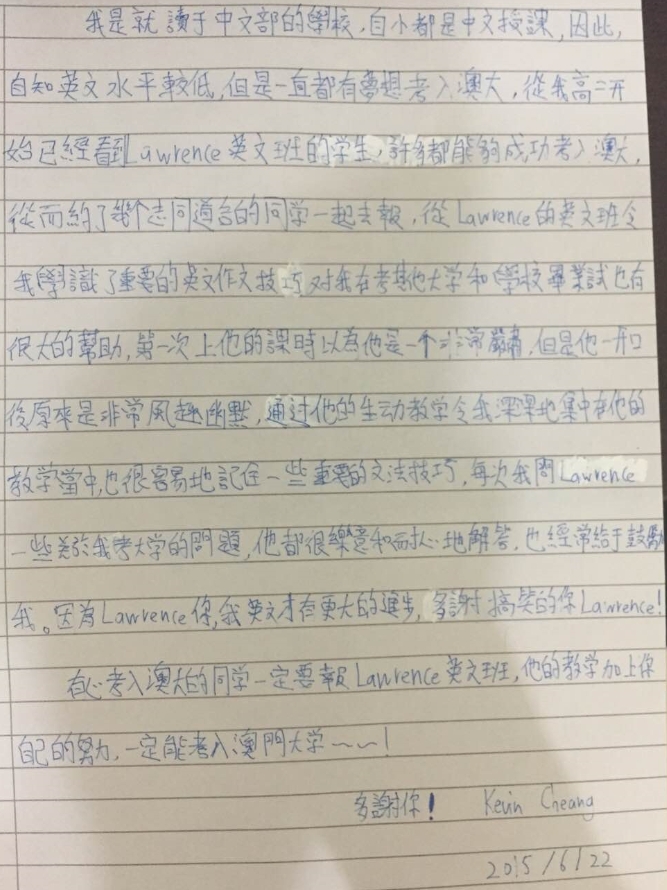 我是就讀于中文部的學校，自小都是中文授課，因此，
自知英文水平較低，但是一直都有夢想考入澳大，從我高二开
始已經看到Lawrence英文班的学生，許多都能夠成功考入澳大，
從而約了幾个志同道合的同学一起去報，從Lawrence的英文班令
我學識了重要的英文作文技巧，对我在考其他大学和學校畢業試也有
很大的幫助，第一次上他的課時以為他是一个非常嚴肅，但是他一开口
後原來是非常風趣幽默，通过他的生动教学令我深深地集中在他的
教学當中，也很容易地記住一些重要的文法技巧，每次我問Lawrence
一些关於我考大学的問題，他都很樂意和耐心地解答，也經常給于鼓勵
我。因為Lawrence你，我英文才有更大的進步，多謝搞笑的你Lawrence!
有心考入澳大的同学一定要報Lawrence英文班，他的教学加上你
自己的努力，一定能考入澳門大学～～!
多謝你! Kevin Cheang
2015/6/22